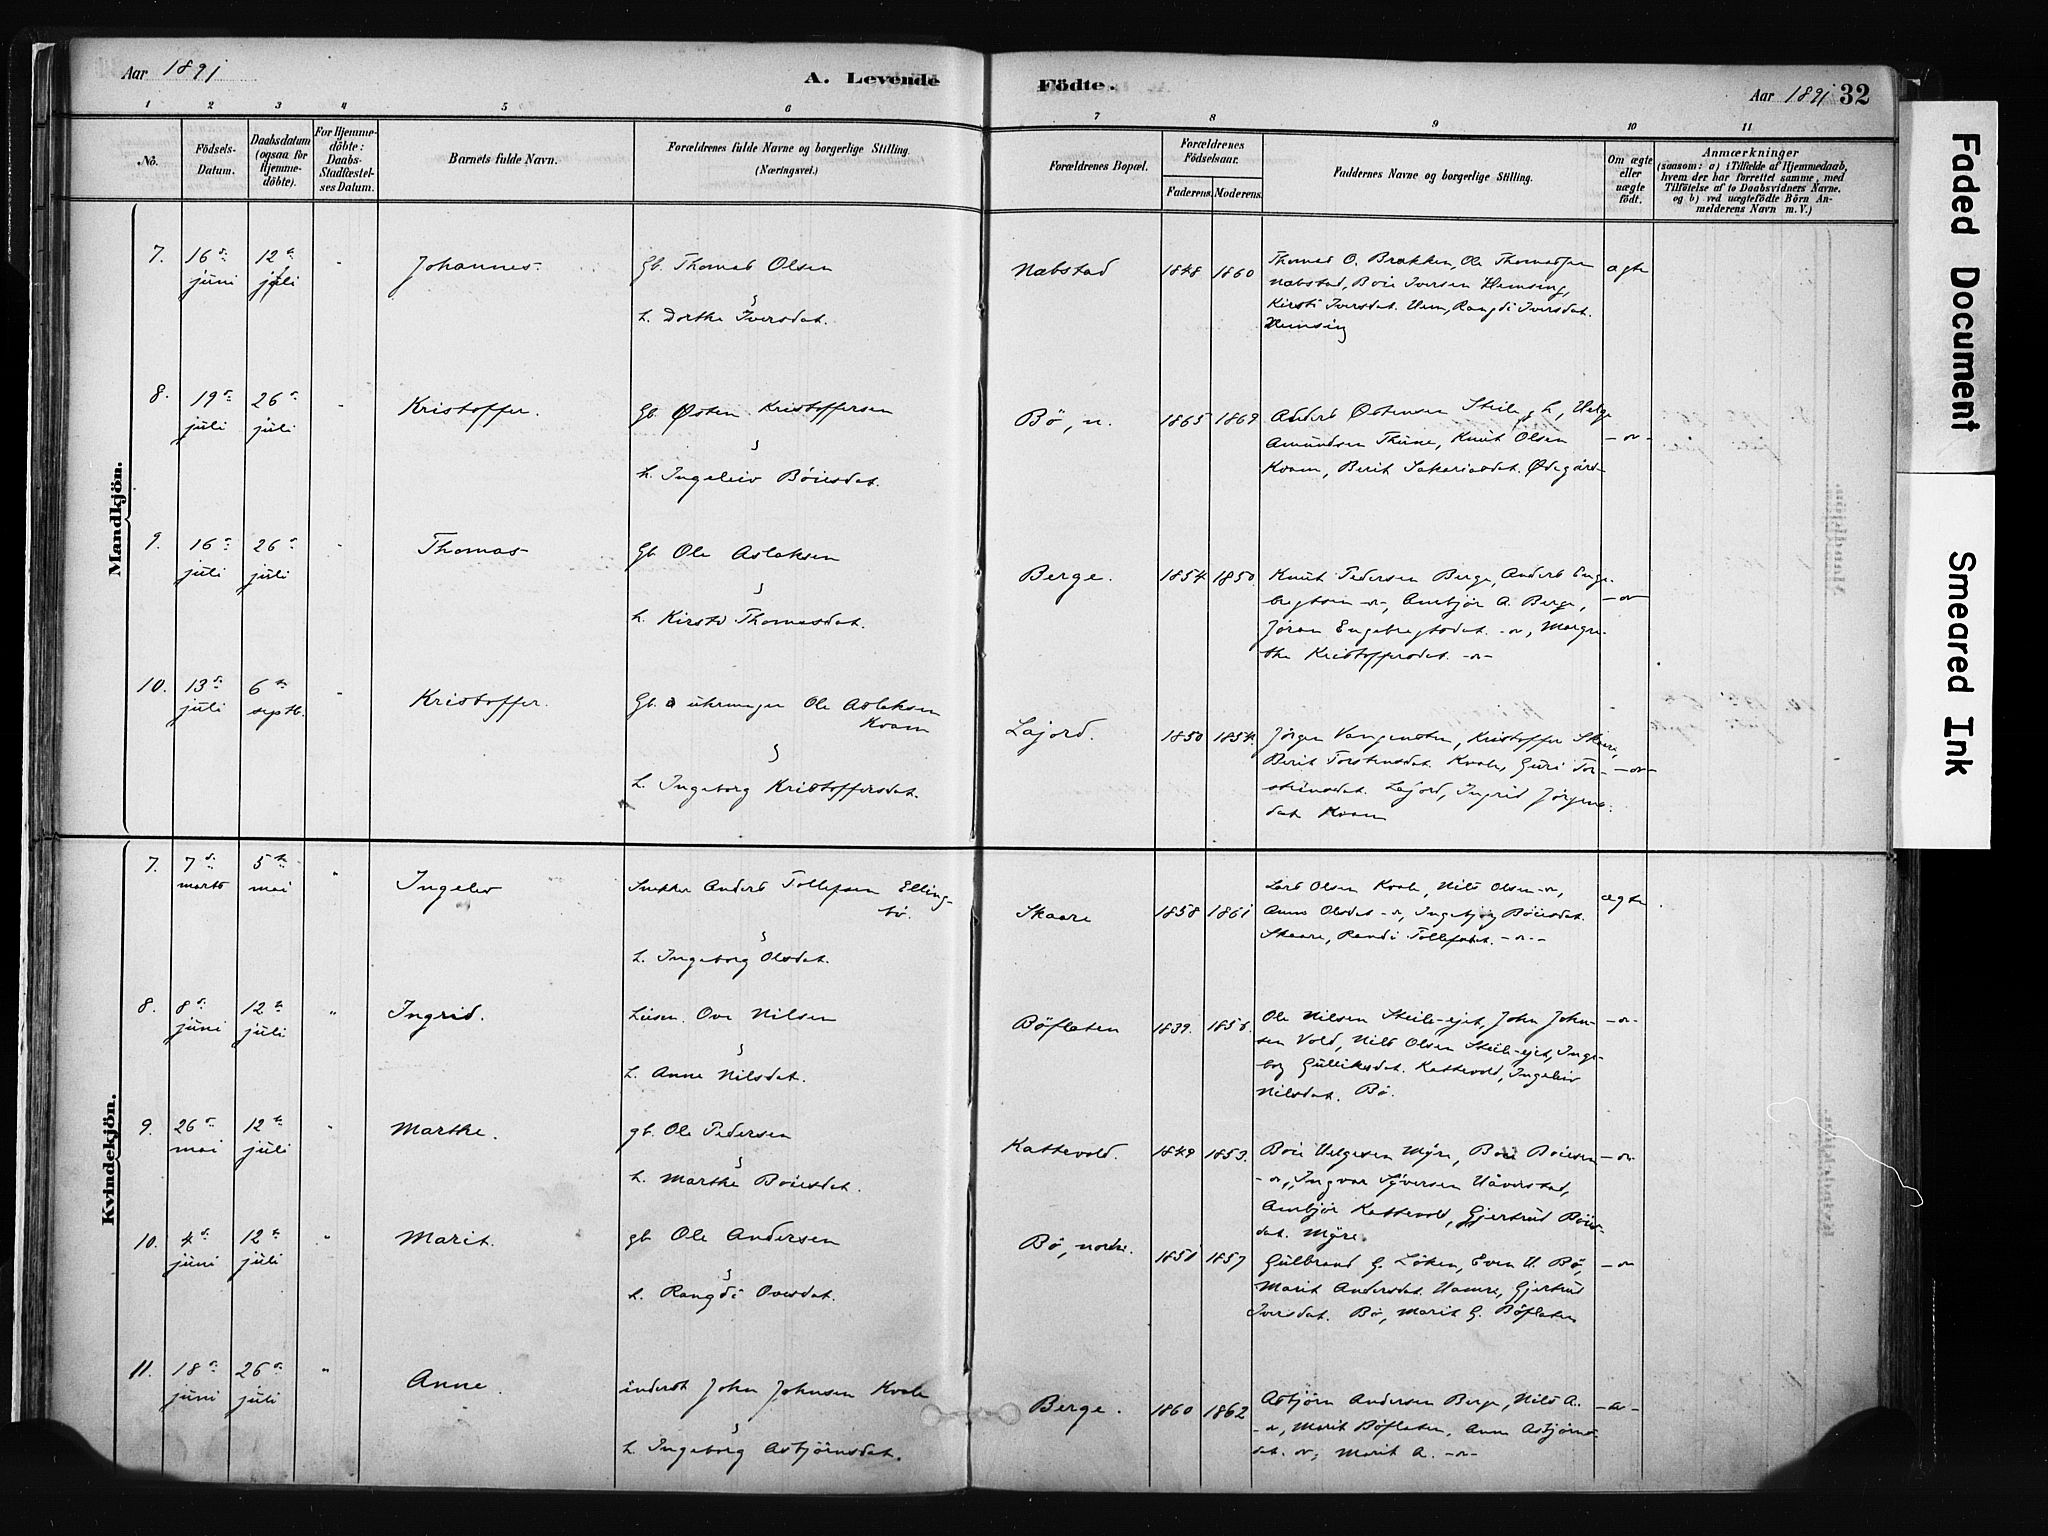 Aar 1891
A. Levende Födte.
Aar 1891 32
1 2 3 4 5 6 7 8 9 10 11
No.
Födsels-Datum.
Daabsdatum (ogsaa for Hjemme-döbte).
For Hjemme-döbte: Daabs-Stadfæstel-ses Datum.
Barnets fulde Navn.
Forældrenes fulde Navne og borgerlige Stilling. (Næringsvei.)
Forældrenes Bopæl.
Forældrenes Födselsaar.
Faderens. Moderens.
Faddernes Navne og borgerlige Stilling.
Om ægte eller uægte födt.
Anmærkninger
(saasom: a) i Tilfælde af Hjemmedaab,
hvem der har forrettet samme, med
Tilföielse af to Daabsvidners Navne.
og b) ved uægtefödte Börn An-
melderens Navn m. V.)
Mandkjön.
7. 16 juni 12 juli " Johannes. Gb. Thomas Olsen
h. Dorthe Iversdat.
Næbstad 1848 1860
Thomas O. Brækken, Ole Thomassen
Næbstad, Boie Iversen Hemsing,
Kirsti Iversdat. Hem, Rangdi Iversdat.
Hemsing
ægte
8. 19 juli 26 juli " Kristoffer. Gb. Østen Kristoffersen
h. Ingeleiv Böiesdat.
Bö, n. 1865 1869
Anders Østensen Steile g. h., Helge
Amundsen Thune, Knut Olsen
Kvam, Berit Sakariasdat. Ødegård
-or-
9. 16 juli 26 juli " Thomas Gb. Ole Aslaksen
h. Kirsti Thomasdat.
Berge. 1854. 1850.
Knut Pedersen Berge, Anders Enge-
bregtsen -or-, Ambjör A. Berge,
Jöran Engebregtsdat. -or-, Margre-
the Kristoffersdat. -or-
-or
10. 13 juli 6 septb. " Kristoffer. Gb. & uhrmager Ole Aslaksen
Kvam
h. Ingeborg Kristoffersdat.
Lajord. 1850 1854.
Jörgen Vangensten, Kristoffer Skaare,
Berit Torstensdat. Kvale, Guri Tor-
steinsdat. Lajord, Ingrid Jörgens-
dat Kvam
-or-
Kvindekjön.
7. 7 marts 5 mai " Ingeleiv Snekker Anders Tollefsen Elling-
bö.
h. Ingeborg Olsdat.
Skaare 1858 1861
Lars Olsen Kvale, Nils Olsen -or-,
Anne Olsdat -or-, Ingebjörg Böiesdat.
Skaare, Randi Tollefsdat. -or-
ægte
8. 8 juni 12 juli " Ingrid. Leiem. Ove Nilsen
h. Anne Nilsdat.
Böflaten 1839. 1856.
Ole Nilsen Steile-ejet, John John-
sen Vold, Nils Olsen Steile-ejet, Inge-
borg Gulliksdat. Kattevold, Ingeleiv
Nilsdat. Bö.
-or-
9. 26 mai 12 juli " Marthe. gb. Ole Pedersen
h. Marthe Boiesdat.
Kattevold. 1849 1853.
Boie Helgesen Myre, Boie Boiesen
-or-, Ingvar Syversen Haverstad,
Ambjör Kattevold, Gjertrud Böies-
dat. Myre.
-or-
10. 4 juni 12 juli " Marit. gb. Ole Andersen
h. Rangdi Ovesdat.
Bö, nordre. 1851 1857
Gulbrand G. Löken, Even H. Bö,
Marit Andersdat. Hamre, Gjertrud
Iversdat. Bö, Marit G. Böflaten
-or
11. 18 juni 26 juli " Anne. inderst John Johnsen Kvale
h. Ingeborg Asbjörnsdat.
Berge. 1860 1862
Asbjörn Andersen Berge, Nils A.
-or, Marit Böflaten, Anne Asbjörns-
dat. or, Marit A. -or-
-or-
Faded Document
Smeared Ink